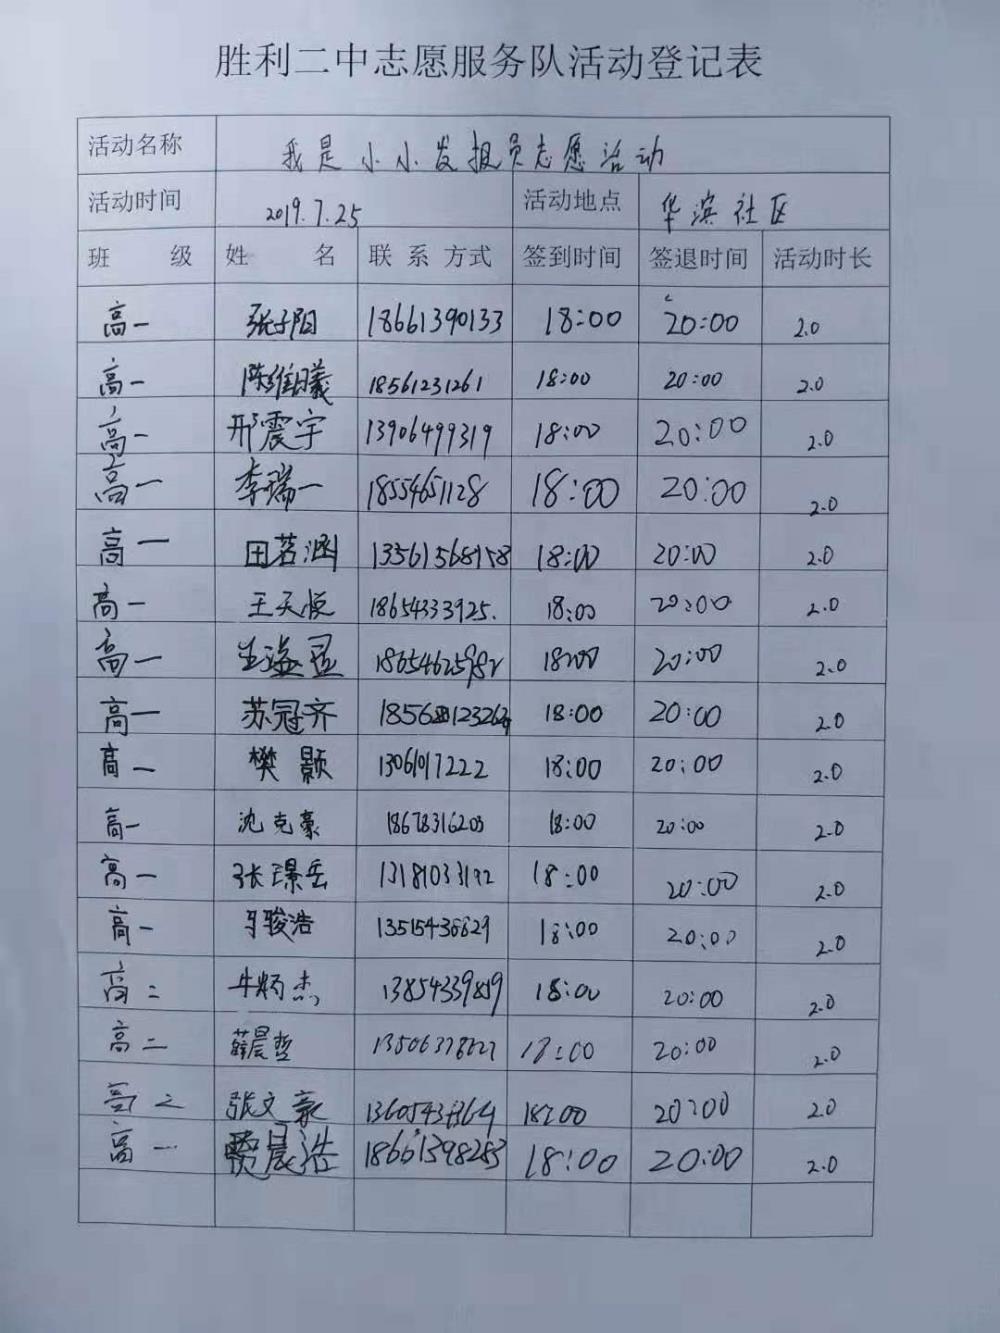 胜利二中志愿服务队活动登记表
活动名称 我是小小发报员志愿活动
活动时间 2019.7.25 活动地点 华滨社区
班 级 姓 名 联系方式 签到时间 签退时间 活动时长
高一 张子阳 18661390133 18:00 20:00 2.0
高一 陈维曦 18561231261 18:00 20:00 2.0
高一 邢震宇 13906499319 18:00 20:00 2.0
高一 李瑞一 18554651128 18:00 20:00 2.0
高一 田茗涵 13561568158 18:00 20:00 2.0
高一 王天悦 18654333925. 18:00 20:00 2.0
高一 18:00 20:00 2.0
高一 苏冠齐 18:00 20:00 2.0
高一 樊颢 13061017222 18:00 20:00 2.0
高一 沈克豪 18678316203 18:00 20:00 2.0
高一 张璟岳 13181033192 18:00 20:00 2.0
高一 马骏浩 13515436829 18:00 20:00 2.0
高二 牛炳杰 13854339859 18:00 20:00 2.0
高二 薛晨哲 18:00 20:00 2.0
高二 张文豪 18:00 20:00 2.0
高一 贾晨浩 18661398283 18:00 20:00 2.0